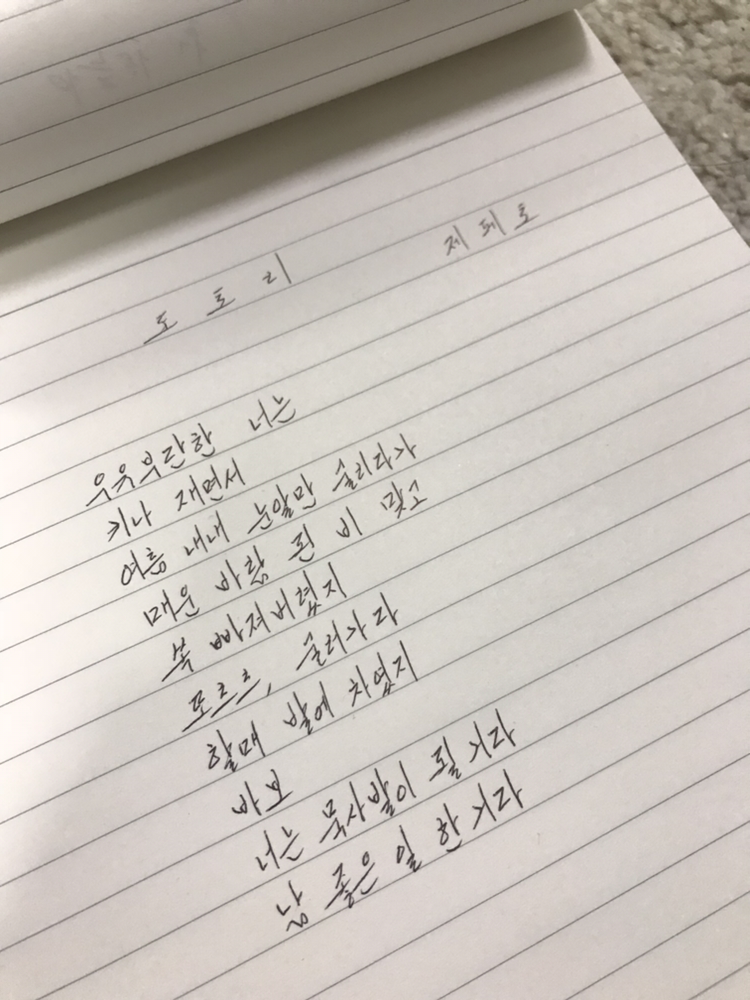 도토리 제페토
우유부단한 너는
키나 재면서
여름 내내 눈알만 굴리다가
매운 바람 된 비 맞고
쏙 빠져버렸지
또르르, 굴러가다
할매 발에 차였지
바보
너는 묵사발이 될 거라
남 좋은 일 한 거라